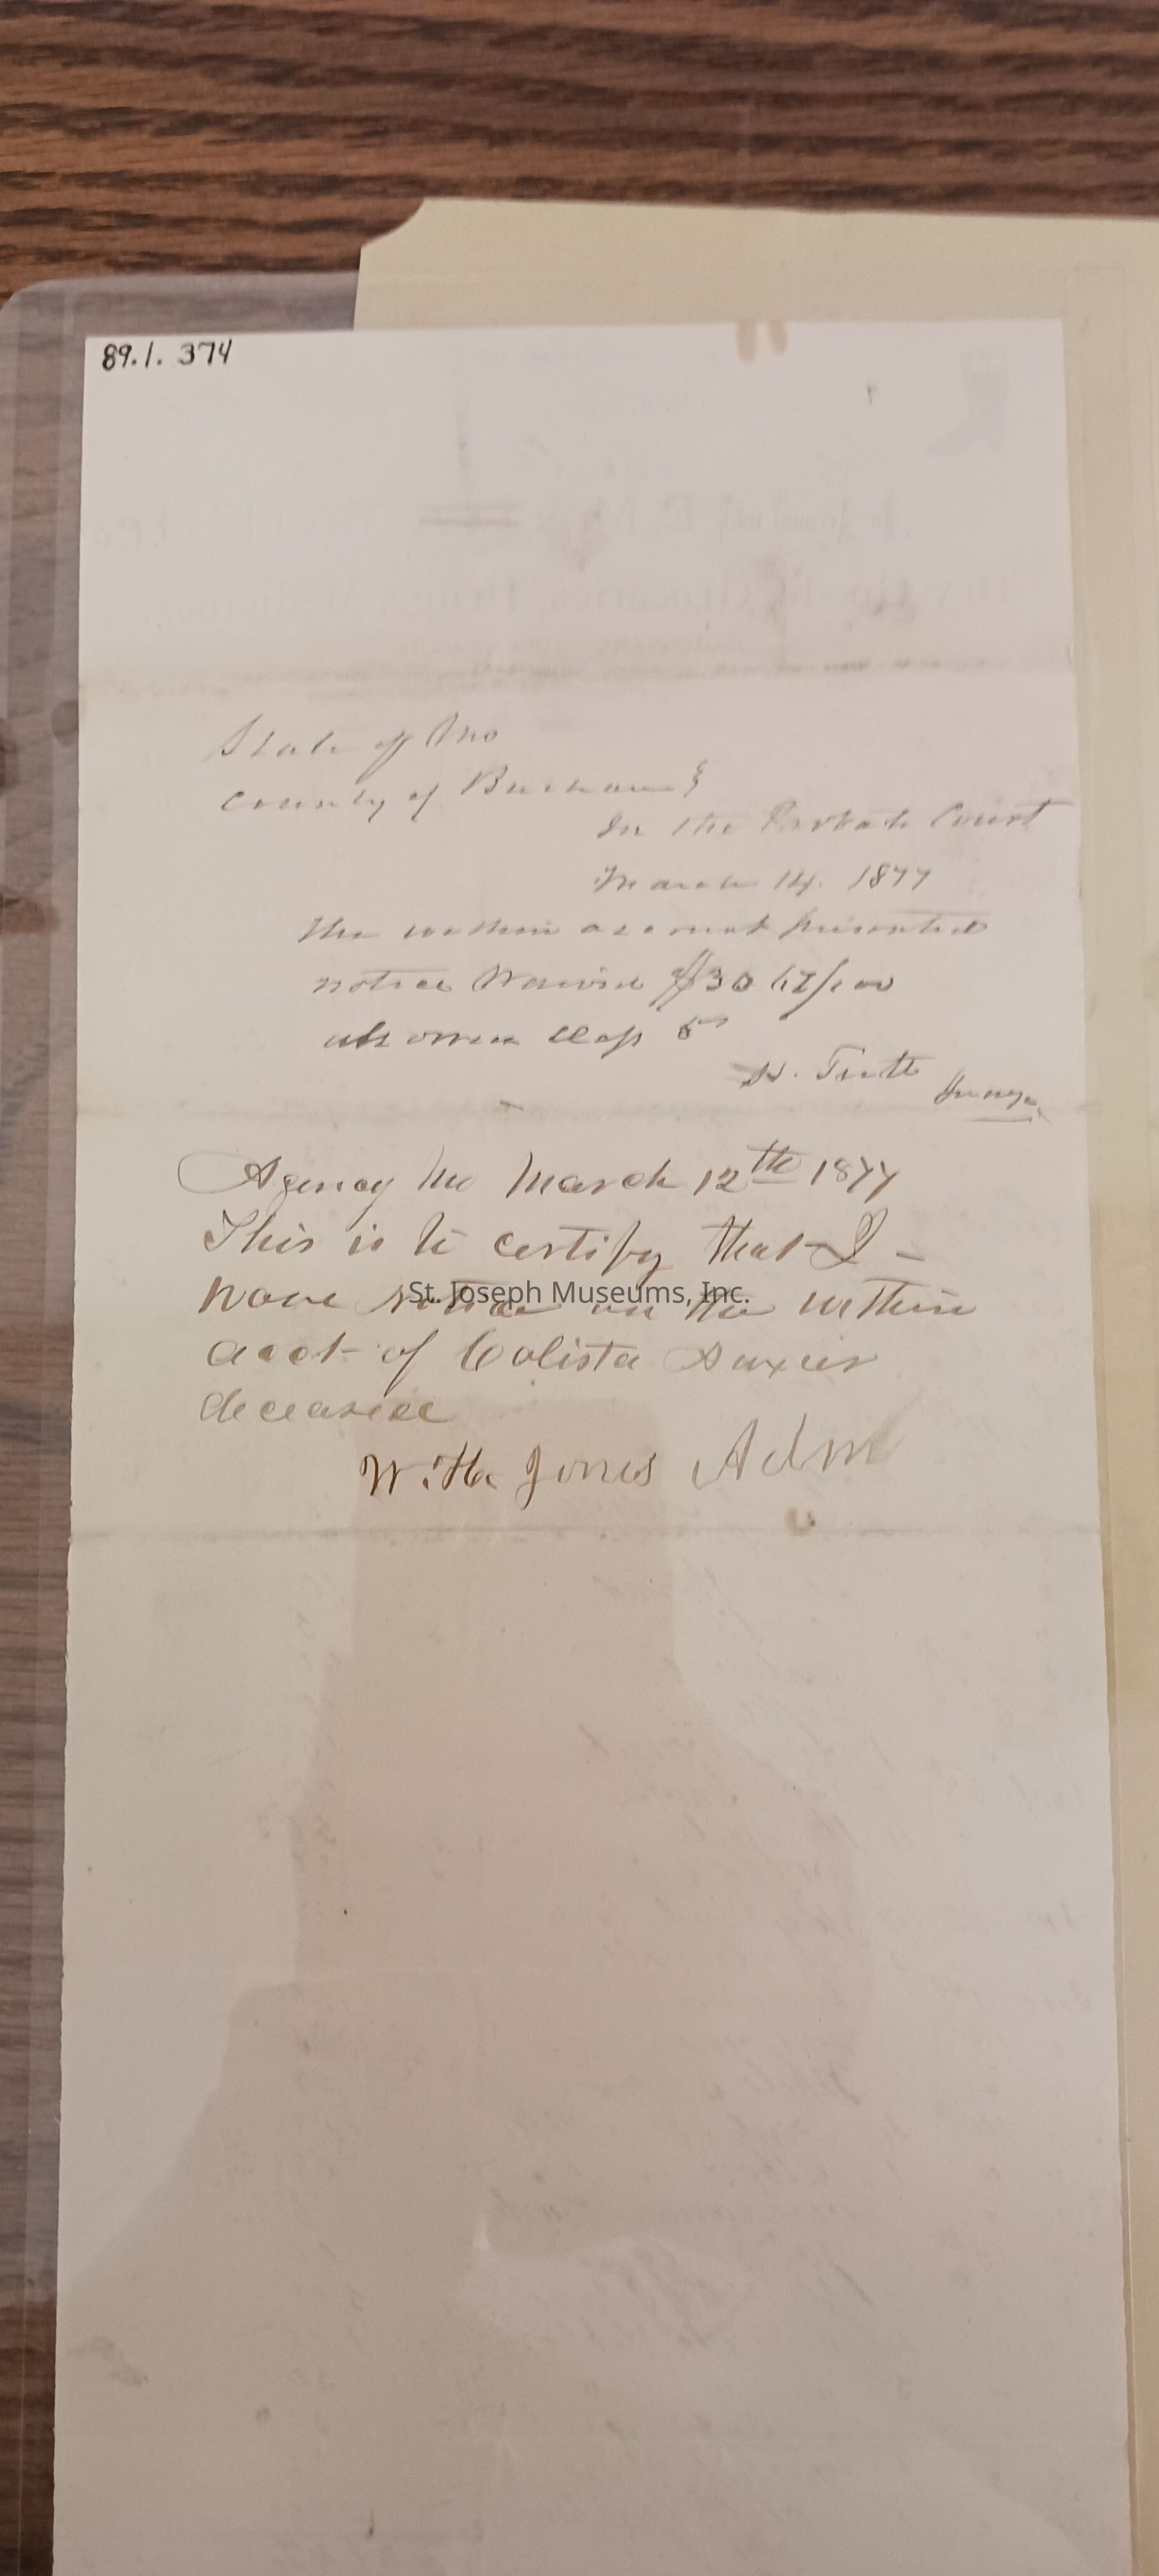 89.1.374
State of Mo
County of Buchanan }
In the Probate Court
March 14. 1877
The within account presented
notice waived $30 67/100
allowed Class 5
H. Tutt Judge
Agency Mo March 12th 1877
This is to certify that I
wave notice on the within
acct of Calista Auxier
deceased
W. H. Jones Adm
St. Joseph Museums, Inc.